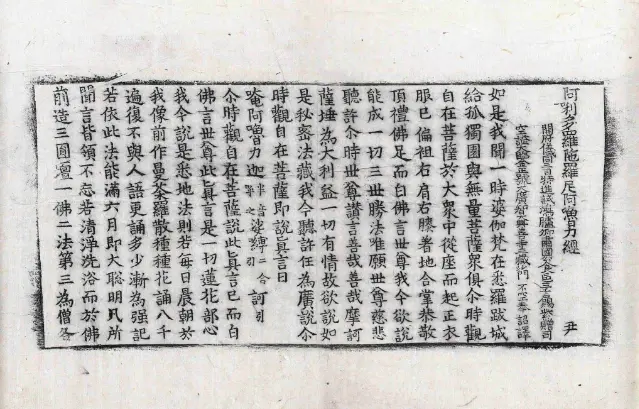 阿利多羅陁羅尼阿嚕力經 尹
開府儀同三司特進試鴻臚卿肅國公食邑三千戶賜紫贈司
空謚大鑑正號大廣智大興善寺三藏沙門不空奉 詔譯
如是我聞一時婆伽梵在悉羅跋城
給孤獨園與無量菩薩衆俱尒時觀
自在菩薩於大衆中從座而起正衣
服已偏袒右肩右膝著地合掌恭敬
頂禮佛足而白佛言世尊我今欲說
能成一切三世勝法唯願世尊慈悲
聽許尒時世尊讃言善哉善哉摩訶
薩埵為大利益一切有情故欲說如
是秘密法藏我今聽許任為廣說尒
時觀自在菩薩即說眞言曰
唵阿嚕力迦半音娑縛二合訶引
尒時觀自在菩薩說此眞言已而白
佛言世尊此眞言是一切蓮花部心
我今說是悉地法則若每日晨朝於
我像前作曼荼羅散種種花誦八千
遍復不與人語更誦多少漸為强記
若依此法能滿六月即大聰明凡所
聞言皆領不忘若清淨洗浴而於佛
前造三圓壇一佛二法第三為僧各